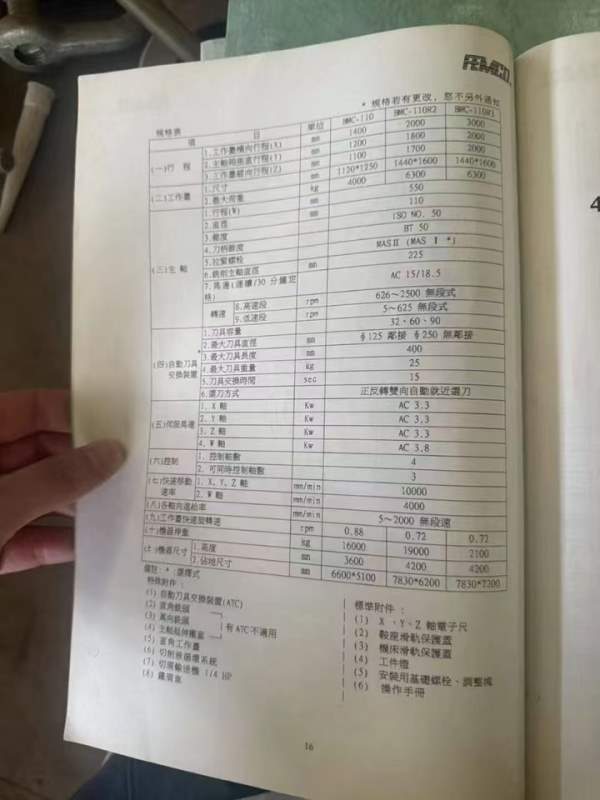 FEMCO
* 規格若有更改，恕不另外通知
規格表
項 目 單位 BMC-110 BMC-110R2 BMC-110R3
(一)行 程 1.工作臺橫向行程(X) mm 1400 2000 3000
2.主軸箱垂直行程(Y) mm 1200 1800 2000
3.工作臺縱向行程(Z) mm 1100 1700 2000
(二)工作臺 1.尺寸 mm 1120*1250 1440*1600 1440*1600
2.最大荷重 kg 4000 6300 6300
(三)主 軸 1.行程(W) mm 550
2.直徑 mm 110
3.錐度 ISO NO. 50
4.刀柄錐度 BT 50
5.拉緊螺栓 MASⅡ (MAS Ⅰ *)
6.銑削主軸直徑 mm 225
7.馬達(連續/30 分鐘定格) AC 15/18.5
轉速 8.高速段 rpm 626～2500 無段式
9.低速段 rpm 5～625 無段式
(四)自動刀具交換裝置 * 1.刀具容量 32、60、90
2.最大刀具直徑 mm φ125 鄰接 φ250 無鄰接
3.最大刀具長度 mm 400
4.最大刀具重量 kg 25
5.刀具交換時間 sec 15
6.選刀方式 正反轉雙向自動就近選刀
(五)伺服馬達 1. X 軸 Kw AC 3.3
2. Y 軸 Kw AC 3.3
3. Z 軸 Kw AC 3.3
4. W 軸 Kw AC 3.8
(六)控制 1. 控制軸數 4
2. 可同時控制軸數 3
(七)快速移動速率 1. X、Y、Z 軸 mm/min 10000
2. W 軸 mm/min 4000
(八)各軸向進給率 mm/min 5～2000 無段速
(九)工作臺快速旋轉速 rpm 0.88 0.72 0.72
(十)機器淨重 kg 16000 19000 2100
(土)機器尺寸 1.高度 mm 3600 4200 4200
2.佔地尺寸 mm 6600*5100 7830*6200 7830*7200
備註: * :選擇式
特殊附件 :
(1) 自動刀具交換裝置(ATC)
(2) 直角銑頭
(3) 萬向銑頭
(4) 主軸延伸護套
有 ATC 不適用
(5) 直角工作臺
(6) 切削液循環系統
(7) 切屑輸送機 1/4 HP
(8) 鐵屑車
標準附件 :
(1) X 、Y、Z 軸電子尺
(2) 鞍座滑軌保護蓋
(3) 機床滑軌保護蓋
(4) 工作燈
(5) 安裝用基礎螺栓、調整塊
(6) 操作手冊
16
4